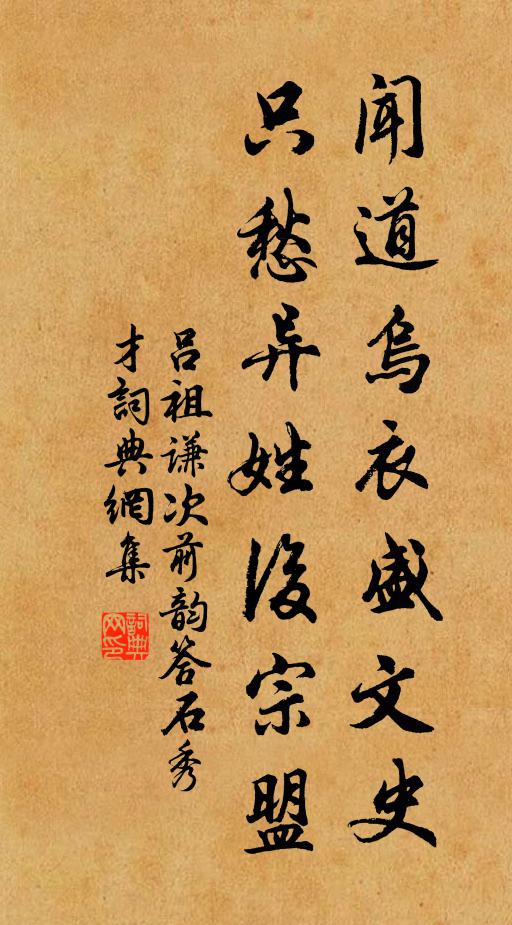 闻道乌衣盛文史
只愁异姓後宗盟
吕祖谦次前韵答石秀
才詞典網集
詞典网印